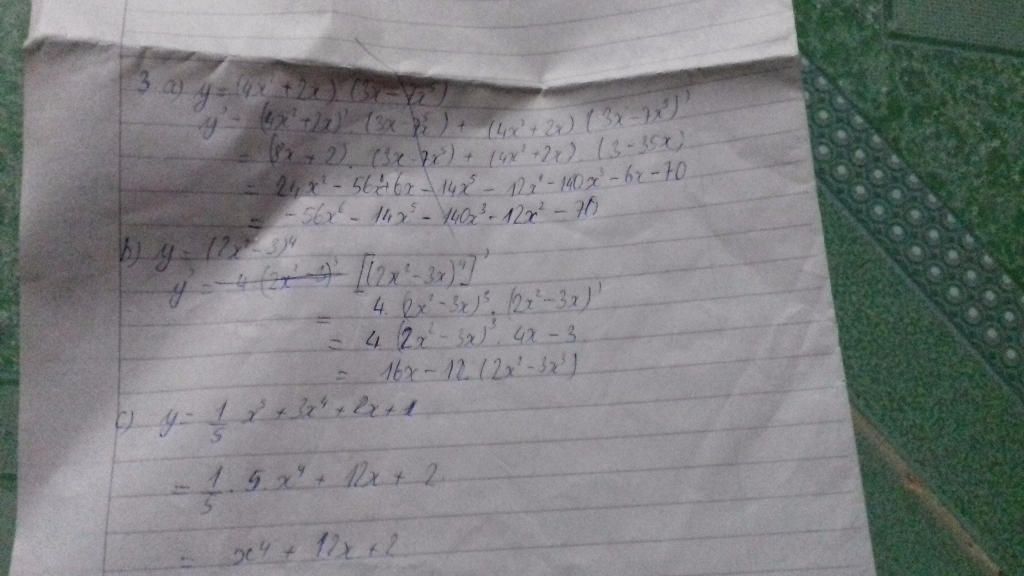 3. a) y = (4x² + 2x) (3x - 7x⁵)
y' = (4x² + 2x)' . (3x - 7x⁵) + (4x² + 2x) (3x - 7x⁵)'
= (8x + 2) . (3x - 7x⁵) + (4x² + 2x) . (3 - 35x)
= 24x² - 56x⁶ + 6x - 14x⁵ - 12x² - 140x³ - 6x - 70
= -56x⁶ - 14x⁵ - 140x³ - 12x² - 70
b) y = (2x² - 3)⁴
y' = [(2x² - 3x)⁴]'
= 4 . (2x² - 3x)³ . (2x² - 3x)'
= 4 . (2x² - 3x)³ . 4x - 3
= 16x - 12 . (2x² - 3x³)
c) y = 1/5 x⁵ + 3x⁴ + 2x + 1
= 1/5 . 5 . x⁴ + 12x + 2
= x⁴ + 12x + 2